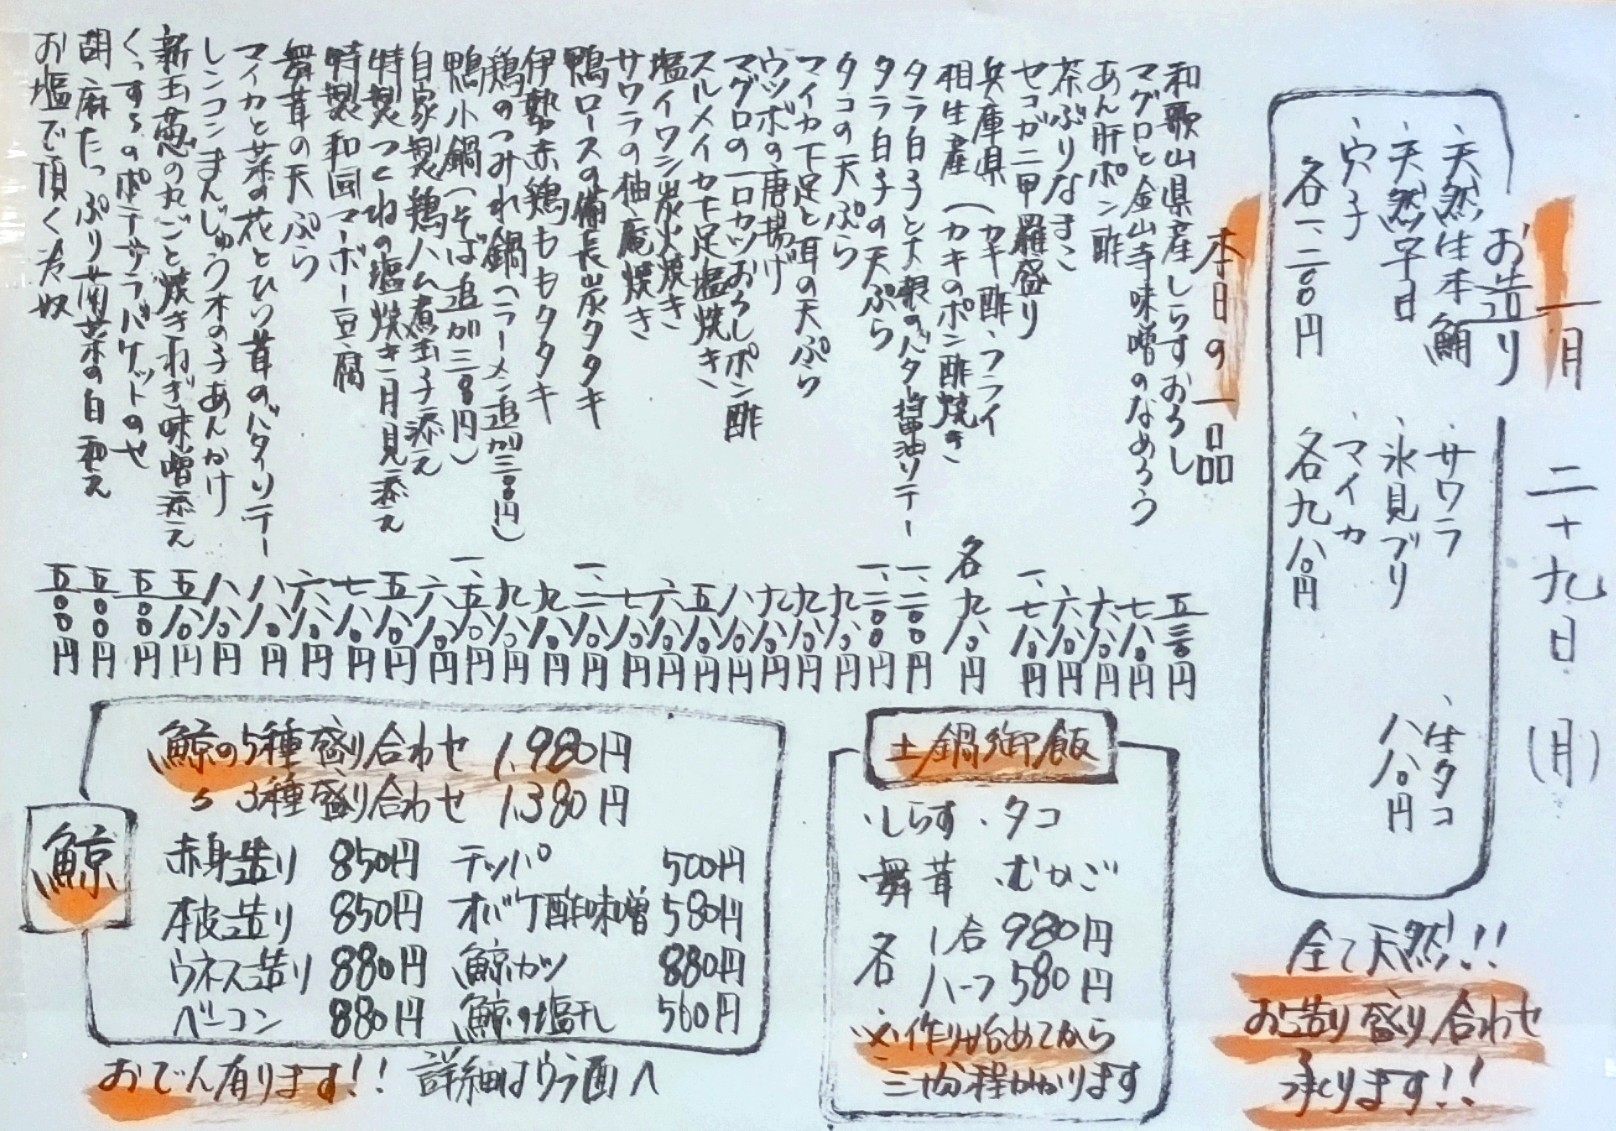 一月二十九日(月)
お造り
・天然生本鮪
・天然平目
・穴子
各一、二〇〇円
・サワラ
・氷見ブリ
・マイカ
各九八〇円
・生タコ
八八〇円
全て天然!!
お造り盛り合わせ
承ります!!
本日の一品
和歌山県産しらすおろし 五三〇円
マグロと金山寺味噌のなめろう 七八〇円
あん肝ポン酢 六八〇円
茶ぶりなまこ 六八〇円
セコガニ甲羅盛り 一、七八〇円
兵庫県 (カキ酢、フライ
相生産 (カキのポン酢焼き 各九八〇円
タラ白子と大根のバター醤油ソテー 一、二〇〇円
タラ白子の天ぷら 一、二〇〇円
タコの天ぷら 九八〇円
マイカ下足と耳の天ぷら 九八〇円
ウツボの唐揚げ 九八〇円
マグロの一口カツおろしポン酢 八八〇円
スルメイカ下足塩焼き 五八〇円
塩イワシ炭火焼き 六八〇円
サワラの柚庵焼き 七八〇円
鴨ロースの備長炭タタキ 一、二八〇円
伊勢赤鶏ももタタキ 九八〇円
鶏のつみれ鍋(ラーメン追加三〇〇円) 九八〇円
鴨小鍋(そば追加三〇〇円) 一、五八〇円
自家製鶏ハム煮玉子添え 六八〇円
特製つくねの塩焼き月見添え 五八〇円
特製和風マーボー豆腐 七八〇円
舞茸の天ぷら 六八〇円
マイカと菜の花とひら茸のバターソテー 八八〇円
レンコンまんじゅう木の子あんかけ 八八〇円
新玉葱の丸ごと焼きねぎ味噌添え 五八〇円
くっすぅのポテサラバケットのせ 五〇〇円
胡麻たっぷり菊菜の白和え 五〇〇円
お塩で頂く冷奴 五〇〇円
土鍋御飯
・しらす ・タコ
・舞茸 ・むかご
各 1合 980円
ハーフ 580円
※作り始めてから
三十分程かかります
鯨
鯨の5種盛り合わせ 1,980円
〃 3種盛り合わせ 1,380円
赤身造り 850円
本皮造り 850円
ウネス造り 880円
ベーコン 880円
テッパ 500円
オバケ酢味噌 580円
鯨カツ 880円
鯨の塩干し 500円
おでん有ります!! 詳細はウラ面へ